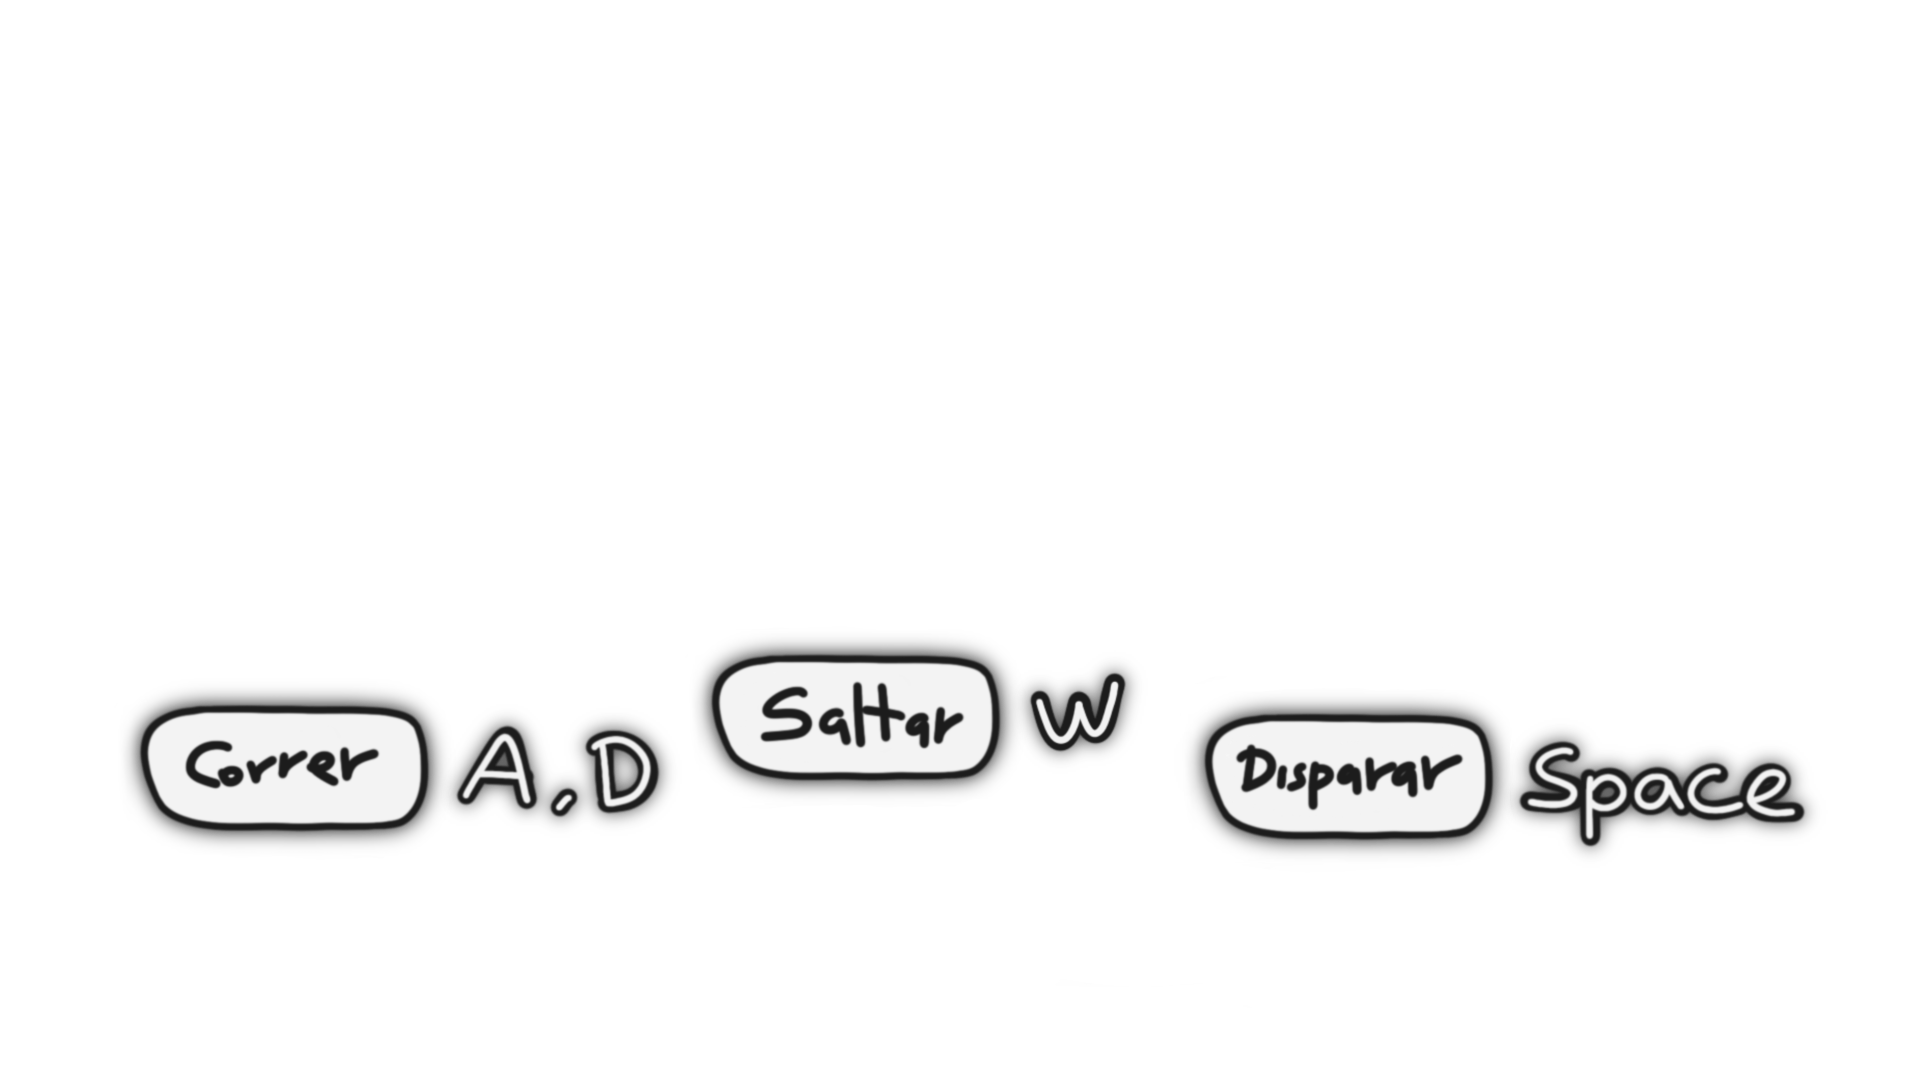 Correr A, D
Saltar W
Disparar Space